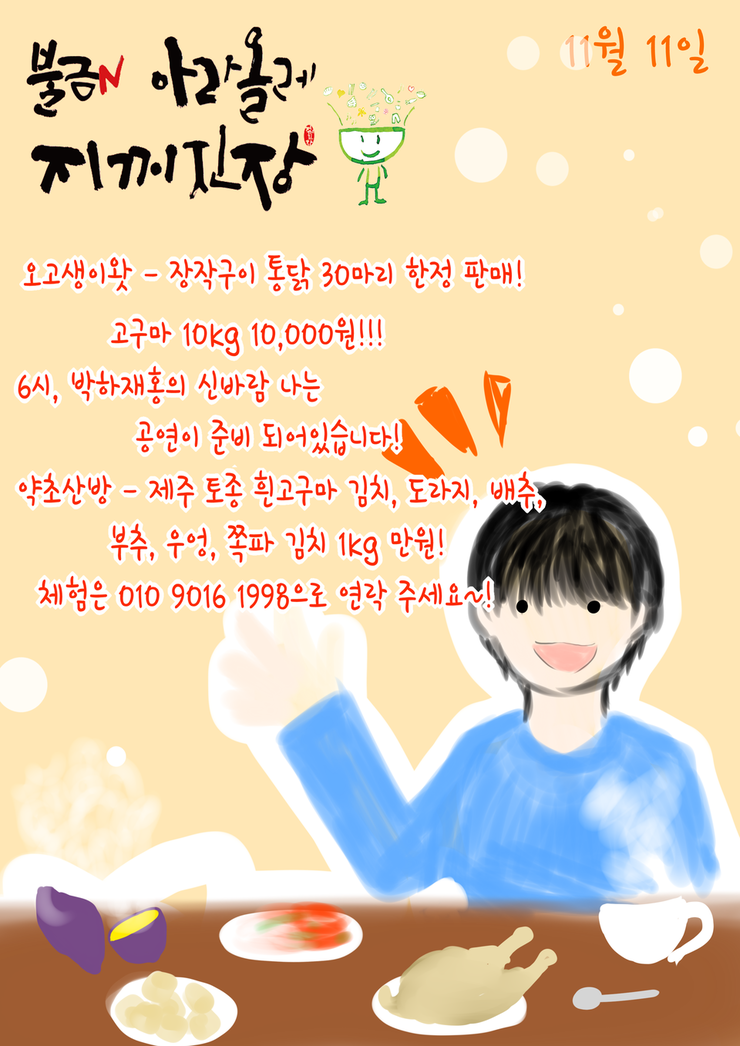 11월 11일
불금N 아라올레
지꺼진장
오고생이왓 - 장작구이 통닭 30마리 한정 판매!
고구마 10kg 10,000원!!!
6시, 박하재홍의 신바람 나는
공연이 준비 되어있습니다!
약초산방 - 제주 토종 흰고구마 김치, 도라지, 배추,
부추, 우엉, 쪽파 김치 1kg 만원!
체험은 010 9016 1998으로 연락 주세요~!